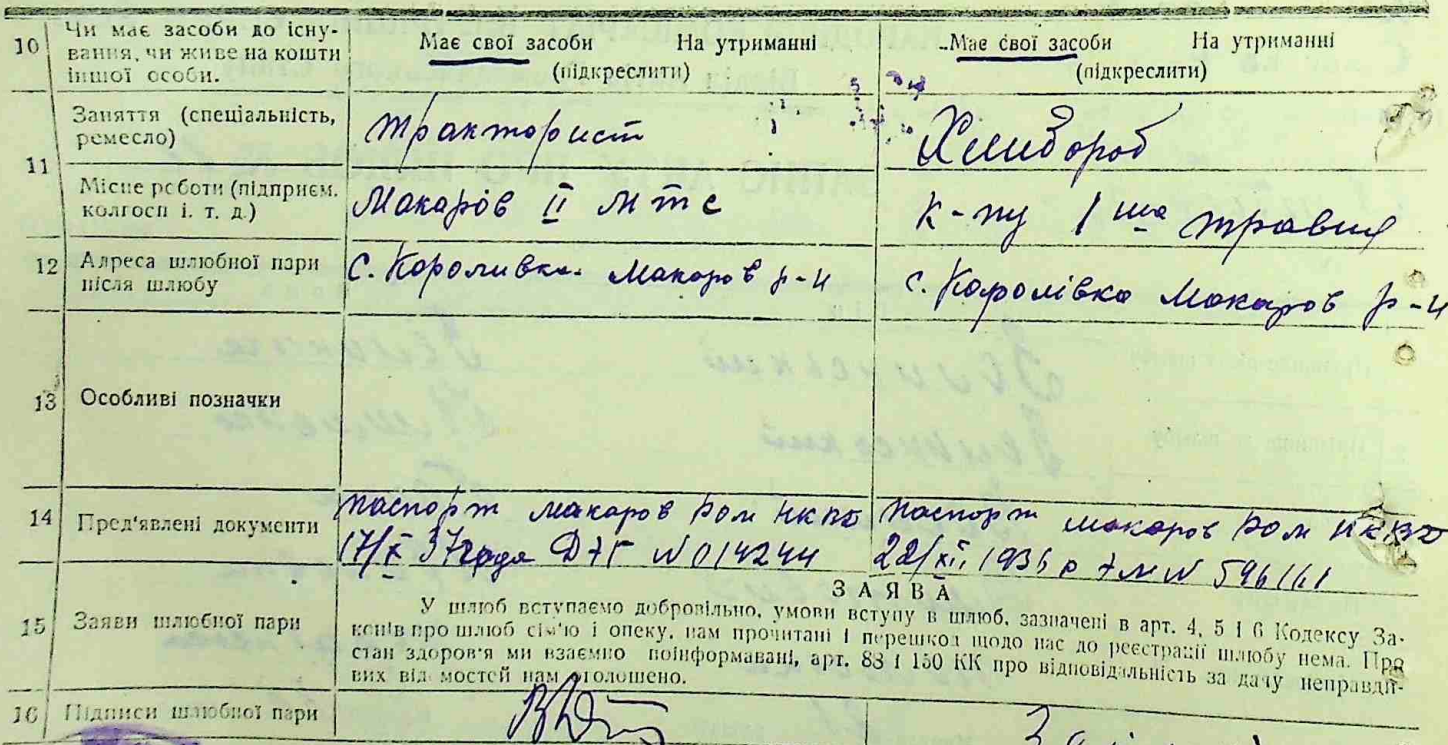 10 Чи має засоби до існування, чи живе на кошти іншої особи. Має свої засоби На утриманні (підкреслити) Має свої засоби На утриманні (підкреслити)
11 Заняття (спеціальність, ремесло) тракторист Хлибороб
Місце роботи (підприєм. колгосп і. т. д.) Макарів II мтс к-пу 1 ша травня
12 Адреса шлюбної пари після шлюбу с. Короливка Макаров р-н с. Каролівка Макаров р-н
13 Особливі позначки
14 Пред'явлені документи паспорт макаров Ром нквд паспорт макаров Ром нквд
17/X 37 года № 014244 22/XII 1936 р № 596161
ЗАЯВА
15 Заяви шлюбної пари У шлюб вступаємо добровільно, умови вступу в шлюб, зазначені в арт. 4, 5 і 6 Кодексу За-
конів про шлюб сім'ю і опеку, нам прочитані і перешкод щодо нас до реєстрації шлюбу нема. Про
стан здоров'я ми взаємно поінформавані, арт. 88 і 150 КК про відповідальність за дачу неправдії-
вих від мостей нам оголошено.
16 Підписи шлюбної пари